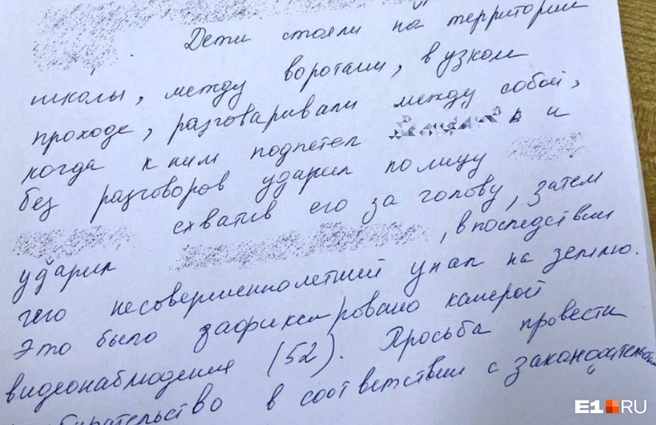 Дети стояли на территории
школы, между воротами, в узком
проходе, разговаривали между собой,
когда к ним подлетел в и
без разговоров ударил по лицу
схватив его за голову, затем
ударил , впоследствии
чего несовершеннолетний упал на землю.
Это было зафиксировано камерой
видеонаблюдения (52). Просьба провести
в соответствии с законодательств
E1.RU